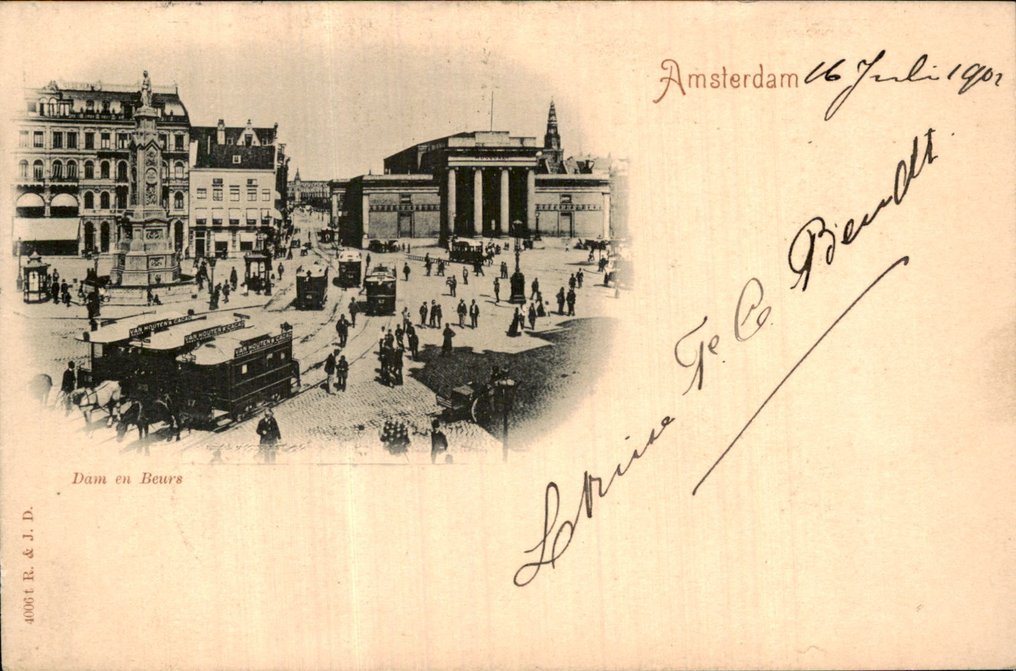 Amsterdam 16 Juli 1901
VAN HOUTEN'S CACAO
VAN HOUTEN'S CACAO
VAN HOUTEN'S CACAO
Dam en Beurs
4006 t R. & J. D.
Louise Te. C. Bendt